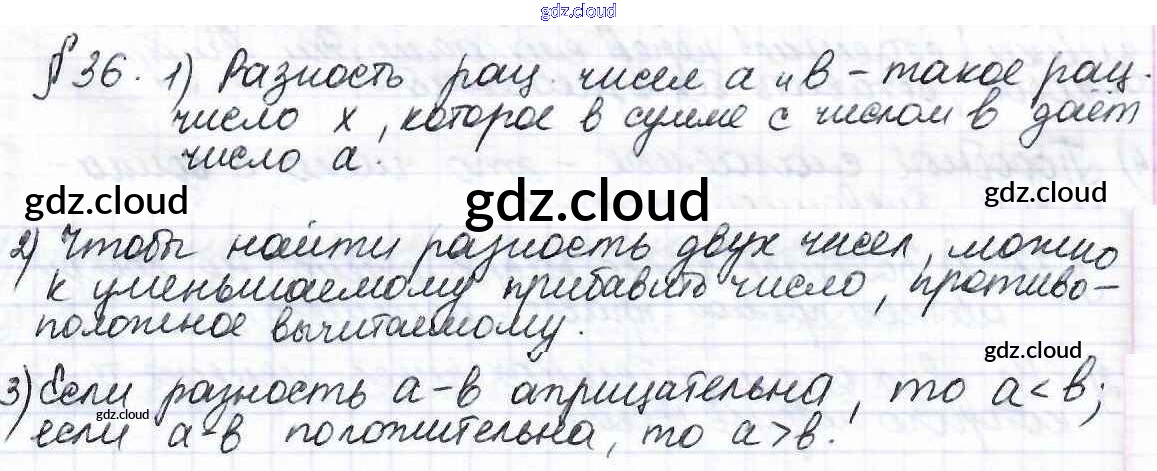 gdz.cloud
§ 36. 1) Разность рац. чисел а и в – такое рац.
число х, которое в сумме с числом в даёт
число а.
gdz.cloud gdz.cloud gdz.cloud
2) Чтобы найти разность двух чисел, можно
к уменьшаемому прибавить число, противо-
положное вычитаемому.
gdz.cloud
3) Если разность а-в атрицательна, то а<в;
gdz.cloud
если а-в положительна, то а>в.